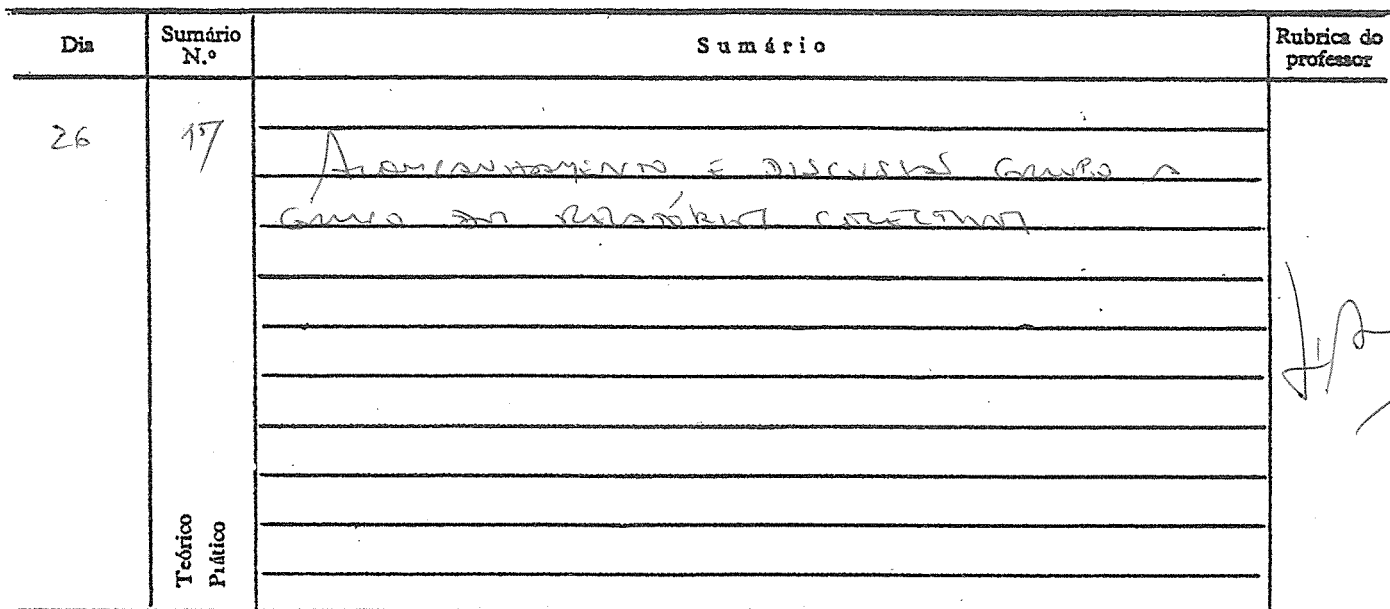 Dia
Sumário N.º
Sumário
Rubrica do professor
26
17
Acompanhamento e discussão grupo a
grupo dos relatórios colectivos
Teórico
Prático